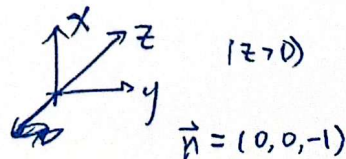 x
z
y
(z>0)
\vec{n} = (0,0,-1)